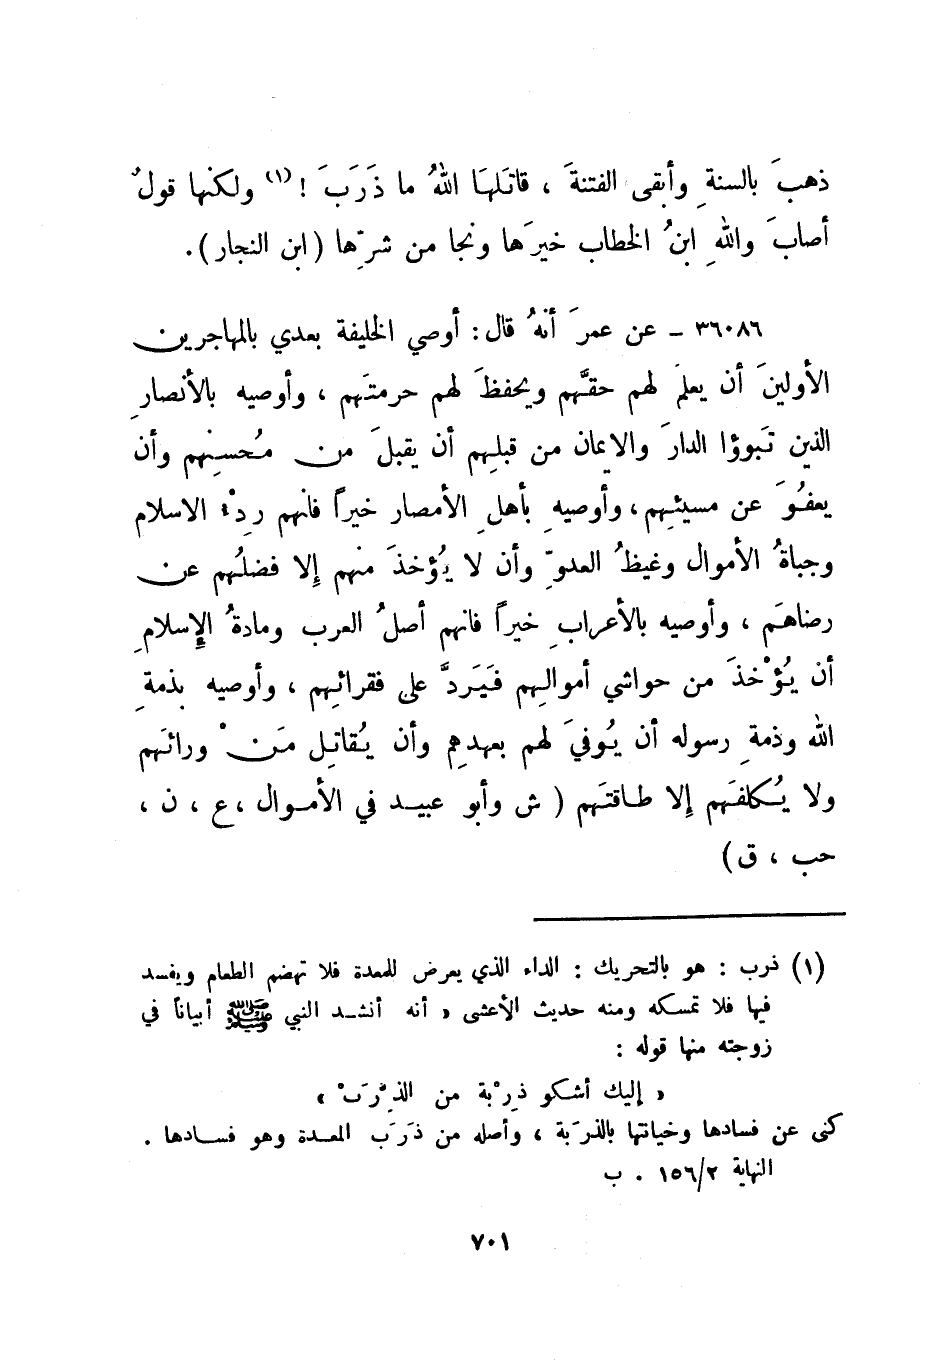 ذهبَ بالسنةِ وأبقى الفتنةَ ، قاتَلهَا اللهُ ما ذَرَبَ ! (١) ولكنها قولٌ
أصابَ واللهِ ابنُ الخطاب خيرَها ونجا من شرِّها ( ابن النجار ) .
٣٦٠٨٦ ـ عن عمرَ أنهُ قال : أوصي الخليفة بعدي بالمهاجرين
الأولينَ أن يعلمَ لهم حقَّهم ويحفظَ لهم حرمتَهم ، وأوصيه بالأنصارِ
الذين تَبوؤا الدارَ والايمان من قبلِهم أن يقبلَ من مُحسنِهم وأن
يعفُوَ عن مسيئهِم ، وأوصيهِ بأهلِ الأمصار خيراً فانهم رِدْء الاسلام
وجباةُ الأموال وغيظُ العدوِّ وأن لا يُؤخذَ منهم إلا فضلُهم عن
رضاهَم ، وأوصيه بالأعرابِ خيراً فانهم أصلُ العرب ومادةُ الإسلامِ
أن يُؤْخذَ من حواشي أموالِهم فَيَردَّ على فقرائهِم ، وأوصيه بذمةِ
الله وذمةِ رسوله أن يُوفيَ لهم بعهدِهم وأن يُقاتِل مَنْ ورائهَم
ولا يُكلفَهم إلا طاقتَهم ( ش وأبو عبيد في الأموال ، ع ، ن ،
حب ، ق )
(١) ذرب : هو بالتحريك : الداء الذي يعرض للمعدة فلا تهضم الطعام ويفسد
فيها فلا تمسكه ومنه حديث الأعشى « أنه أنشد النبي ﷺ أبياتاً في
زوجته منها قوله :
« إليك أشكو ذِرْبة من الذِّرَبْ »
كنى عن فسادها وخيانتها بالذرَبة ، وأصله من ذَرَب المعدة وهو فسادها .
النهاية ١٥٦/٢ . ب
٧٠١